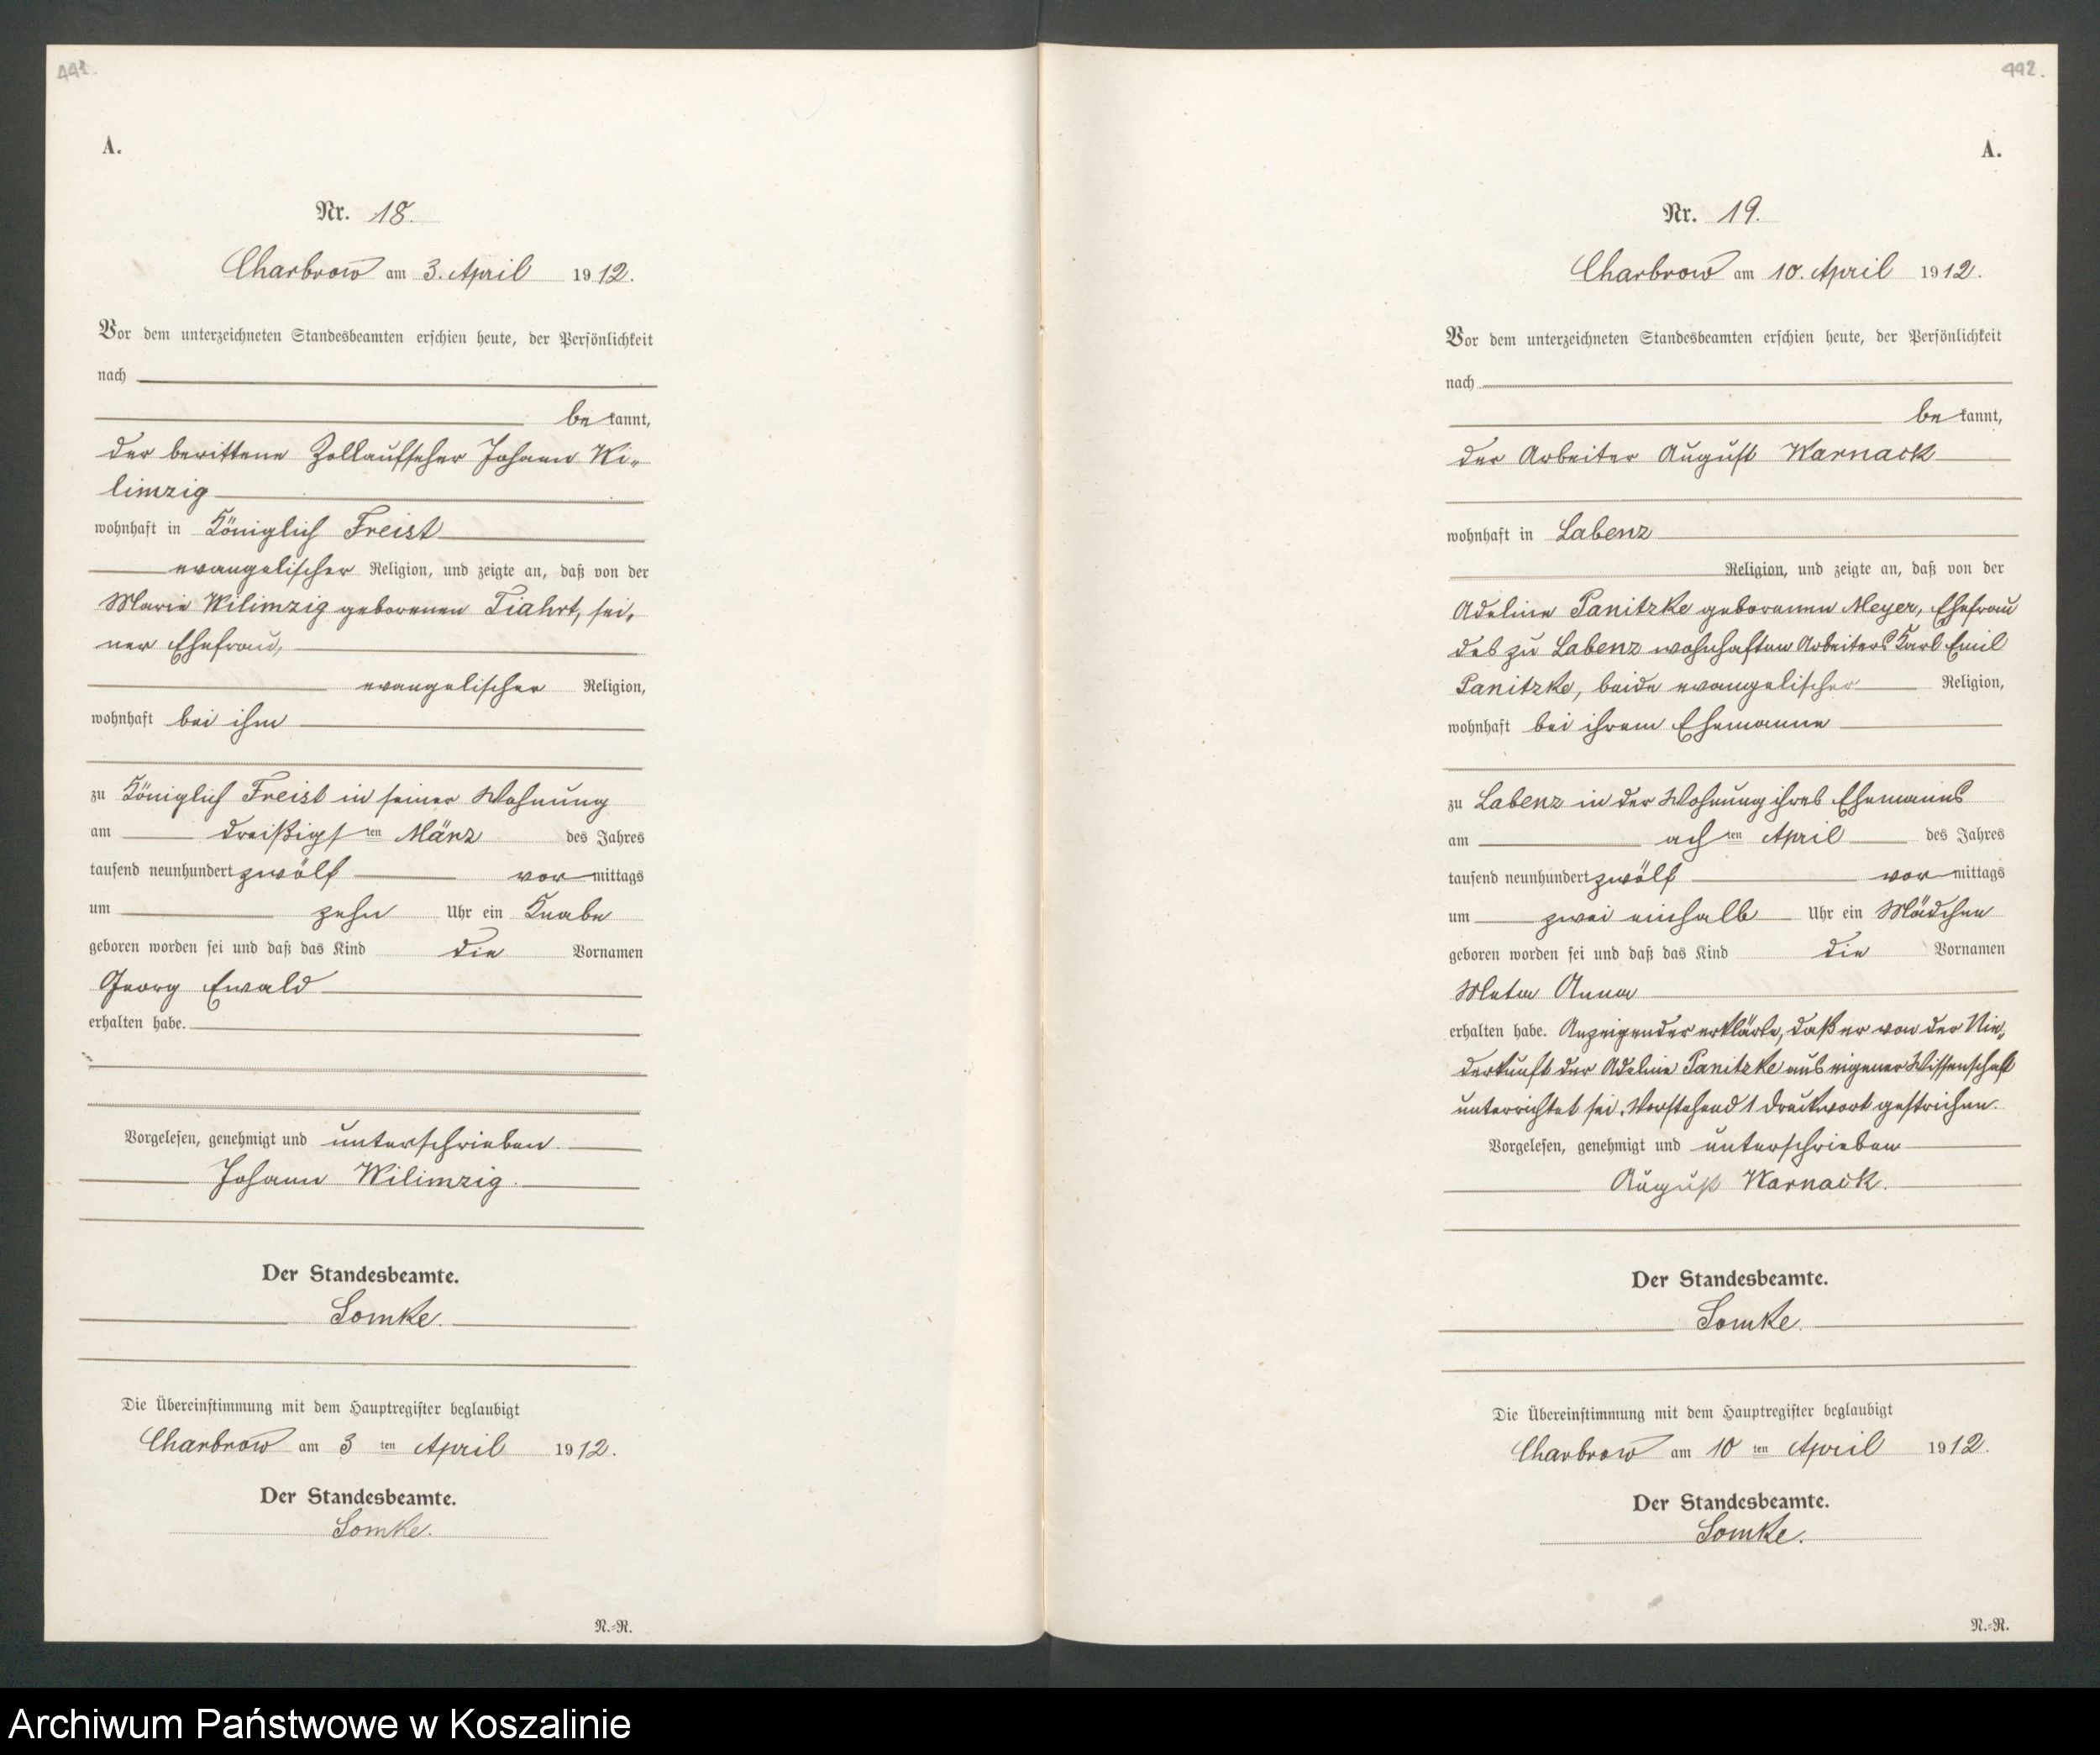 441.
A.
Nr. 18.
Charbrow am 3. April 1912.
Vor dem unterzeichneten Standesbeamten erschien heute, der Persönlichkeit
nach
be kannt,
der berittene Zollaufseher Johann Wi-
limzig
wohnhaft in Königlich Freist
evangelischer Religion, und zeigte an, daß von der
Marie Wilimzig geborenen Tiahrt, sei-
ner Ehefrau,
evangelischer Religion,
wohnhaft bei ihm
zu Königlich Freist in seiner Wohnung
am dreißigsten März des Jahres
tausend neunhundert zwölf vormittags
um zehn Uhr ein Knabe
geboren worden sei und daß das Kind die Vornamen
Georg Ewald
erhalten habe.
Vorgelesen, genehmigt und unterschrieben.
Johann Wilimzig.
Der Standesbeamte.
Somke.
Die Übereinstimmung mit dem Hauptregister beglaubigt
Charbrow am 3 ten April 1912.
Der Standesbeamte.
Somke.
N.=R.
442.
A.
Nr. 19.
Charbrow am 10. April 1912.
Vor dem unterzeichneten Standesbeamten erschien heute, der Persönlichkeit
nach
be kannt,
der Arbeiter August Warnack
wohnhaft in Labenz
Religion, und zeigte an, daß von der
Adeline Panitzke geborenen Meyer, Ehefrau
des zu Labenz wohnhaften Arbeiters Karl Emil
Panitzke, beide evangelischer Religion,
wohnhaft bei ihrem Ehemanne
zu Labenz in der Wohnung ihres Ehemanns
am achten April des Jahres
tausend neunhundert zwölf vormittags
um zwei einhalb Uhr ein Mädchen
geboren worden sei und daß das Kind die Vornamen
Meta Anna
erhalten habe. Anzeigender erklärte, daß er von der Nie-
derkunft der Adeline Panitzke aus eigener Wissenschaft
unterrichtet sei. Vorstehend 1 Druckwort gestrichen.
Vorgelesen, genehmigt und unterschrieben
August Warnack.
Der Standesbeamte.
Somke.
Die Übereinstimmung mit dem Hauptregister beglaubigt
Charbrow am 10 ten April 1912.
Der Standesbeamte.
Somke.
N.=R.
Archiwum Państwowe w Koszalinie